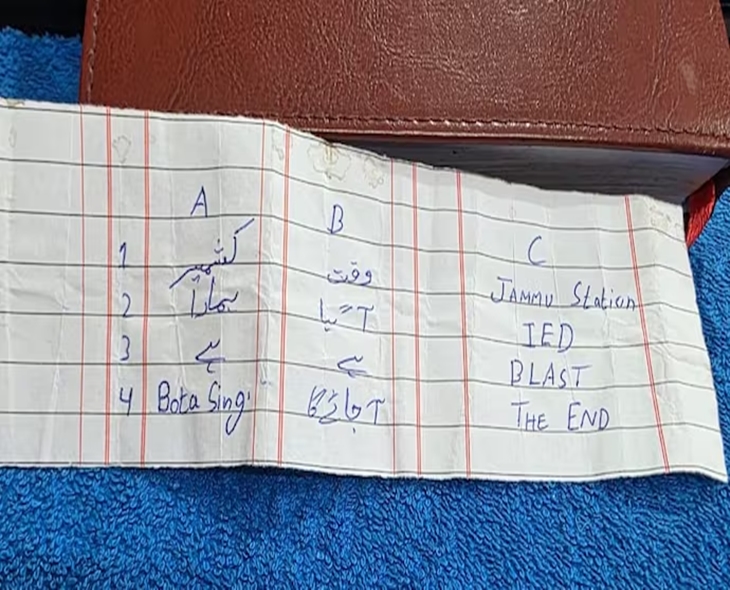 A B C
1 کشمیر وقت JAMMU Station
2 ہمارا آ گیا IED
3 ہے ہے BLAST
4 Bota Singh THE END